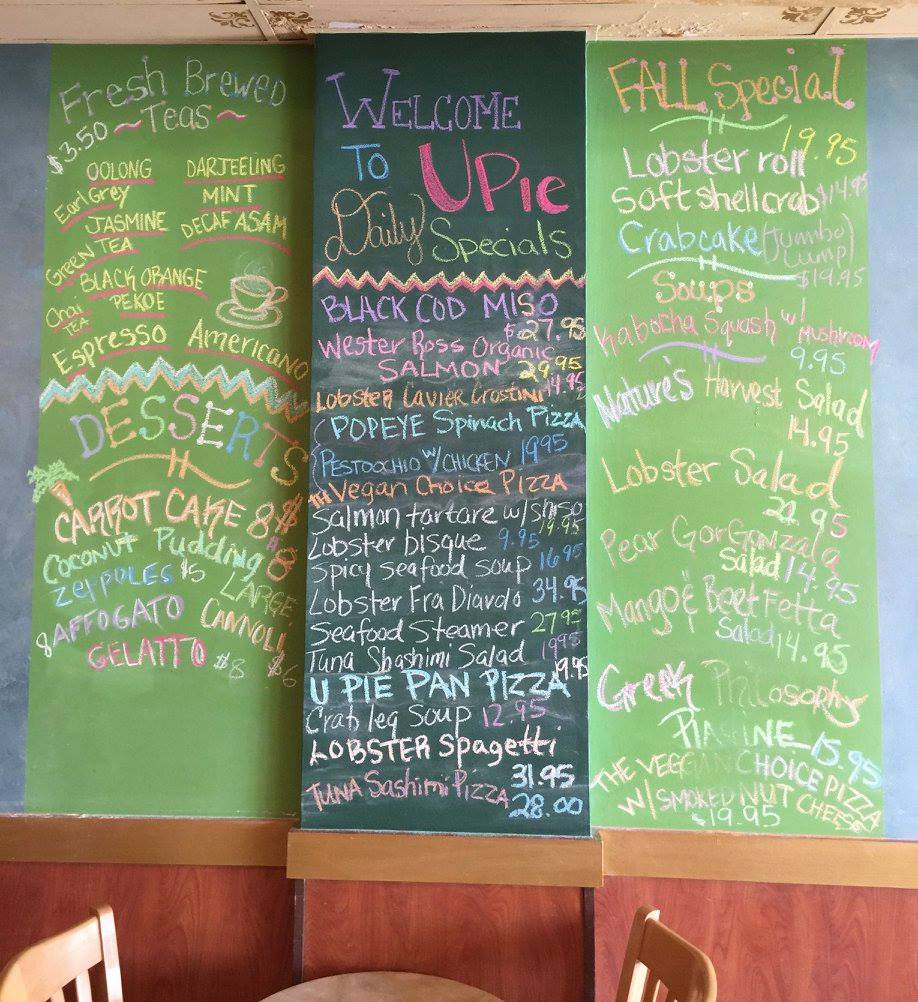 Fresh Brewed
$3.50 ~Teas~
OOLONG DARJEELING
Earl Grey MINT
JASMINE DECAF ASAM
GREEN TEA
BLACK ORANGE
PEKOE
Chai
TEA
Espresso Americano
DESSERTS
CARROT CAKE 8$
Coconut Pudding $8
ZEPPOLES $5
LARGE
CANNOLI
$6
8 AFFOGATO
GELATTO $8
WELCOME
TO UPie
Daily Specials
BLACK COD MISO
$27.95
Wester Ross Organic
SALMON 29.95
Lobster Cavier Crostini 14.95
POPEYE Spinach Pizza
PESTOCCHIO W/CHICKEN 1995
THE Vegan Choice PIZZA
Salmon tartare w/shiso
19.95
Lobster bisque 9.95
Spicy seafood soup 16.95
Lobster Fra Diavolo 34.95
Seafood Steamer 27.95
Tuna Shashimi Salad 1995
19.95
U PIE PAN PIZZA
Crab leg Soup 12.95
LOBSTER Spagetti
31.95
TUNA Sashimi Pizza 28.00
FALL Special
19.95
Lobster roll
Soft shell crab $14.95
Crabcake (Jumbo
Lump)
$19.95
Soups
Kabocha Squash w/ Mushroom
9.95
Nature's Harvest Salad
14.95
Lobster Salad
22.95
Pear Gorgonzala
Salad 14.95
Mango & Beet Fetta
Salad 14.95
Greek Philosophy
15.95
THE VEGGAN CHOICE PIZZA
W/SMOKED NUT CHEESE
$19.95